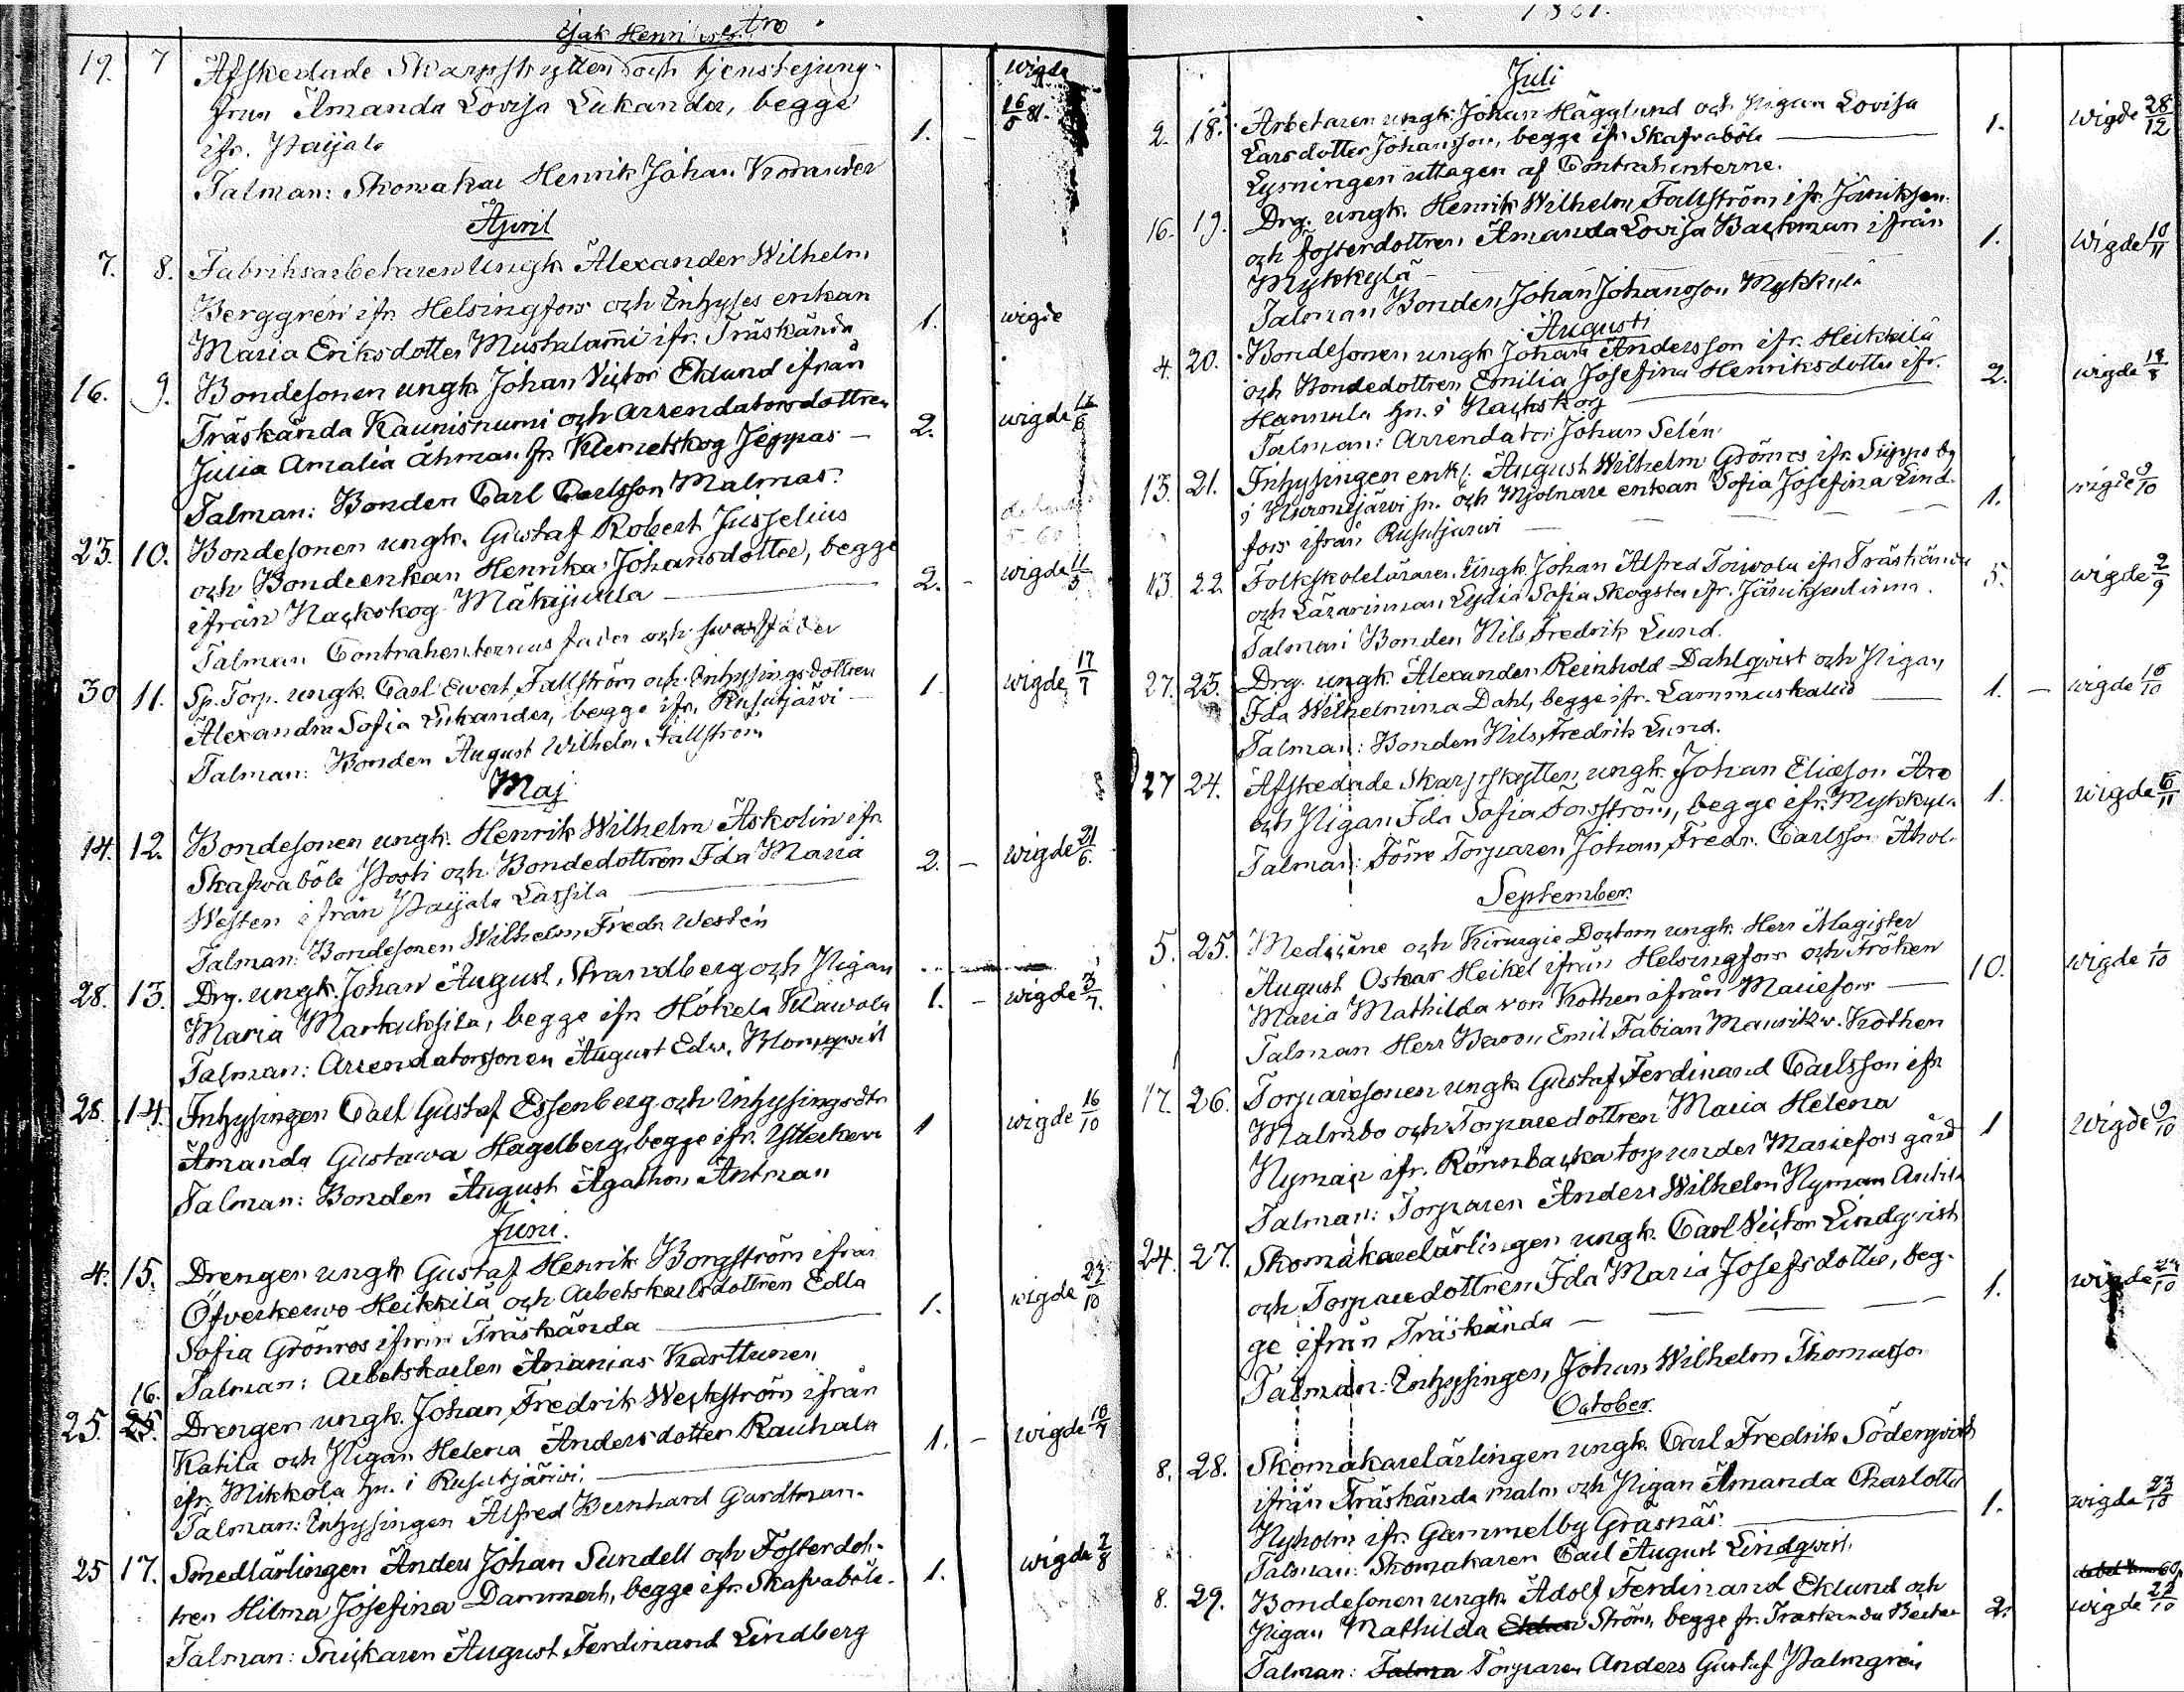 Jak Henri
19. 7 Afskedade Skarpskytten och tjenstejung-
frun Amanda Lovisa Lukander, begge
ifr. Paijala 1. - wigde 81.
Talman: Skomakar Henrik Johan Korander
April
7. 8. Fabriksarbetaren Ungk. Alexander Wilhelm
Berggrén ifr. Helsingfors och Inhyses enkan
Maria Eriksdotter Mustalammi ifr. Träskända 1. wigde
16. 9. Bondesonen ungk. Johan Victor Eklund ifrån
Träskända Kaunisnumi och arrendatorsdottren
Julia Amalia Åhman fr. Klemetskog Jeppas - 2. wigde
Talman: Bonden Carl Carlsson Malmas.
23. 10. Bondesonen ungk. Gustaf Robert Jusselius
och Bondeenkan Henrika Johansdotter, begge
ifrån Nackskog Mäkijuela 2. - wigde
Talman Contrahenternas fader och swärfader
30 11. Sp. Torp. ungk. Carl Ewert Fallström och Inhysingsdottren
Alexandra Sofia Lukander, begge ifr. Rusutjärvi - 1 wigde 17/7
Talman: Bonden August Wilhelm Fallström
Maj
14. 12. Bondesonen ungk. Henrik Wilhelm Askolin ifr.
Skafvaböle Posti och Bondedottren Ida Maria
Westen ifrån Paijala Lassila 2 - wigde 21/6.
Talman: Bondesonen Wilhelm Fredr. Westén
28. 13. Drg. ungk. Johan August Strandberg och Pigan
Maria Markuksila, begge ifr. Hökela Klawola 1. - wigde 3/7.
Talman: Arrendatorssonen August Edw. Blomqwist
28. 14. Inhysingen Carl Gustaf Essenberg och Inhysingsdtr
Amanda Gustawa Hagelberg, begge ifr. Ytterkerv 1 wigde 16/10
Talman: Bonden August Agathon Antman
Juni.
4. 15. Drengen ungk Gustaf Henrik Borgström ifrån
Öfverkerwo Heikkilä och Arbetskarlsdottren Edla
Sofia Grönroos ifrån Träskända 1. wigde 23/10
Talman: Arbetskarlen Ananias Karttunen
25. 16. Drengen ungk. Johan Fredrik Weckström ifrån
Katila och Pigan Helena Andersdotter Rauhala
ifr. Mikkola hn. i Rusutjärvi. 1. - wigde 10/7
Talman: Inhysingen Alfred Bernhard Gardtman.
25 17. Smedlärlingen Anders Johan Sundell och Fosterdot-
tren Hilma Josefina Dammert, begge ifr. Skafvaböle. 1. wigde 2/8
Talman: Snickaren August Ferdinand Lindberg
1881.
Juli
2. 18. Arbetaren ungk. Johan Hägglund och Pigan Lovisa
Larsdotter Johansson, begge ifr. Skafvaböle 1. wigde 28/12
Lysningen uttagen af Contrahenterne.
16. 19. Drg. ungk. Henrik Wilhelm Fallström ifr. Jäniksen-
och Fosterdottren Amanda Lovisa Backman ifrån
Mykkylä 1. Wigde
Talman Bonden Johan Johansson Mykkylä
Augusti
4. 20. Bondesonen ungk. Johan Andersson ifr. Heikkilä
och Bondedottren Emilia Josefina Henriksdotter ifr.
Hannula hn. i Nackskog 2. wigde
Talman: Arrendator Johan Selén
13. 21. Inhysingen enkl. August Wilhelm Grönroos ifr. Seppo by
i Nurmijärvi sn. och Mjölnare enkan Sofia Josefina Lind-
fors ifrån Rusutjärvi 1. wigde 9/10
13 22 Folkskoleläraren Ungk. Johan Alfred Toivola ifr. Träskända
och Lärarinnan Lydia Sofia Skogster ifr. Jäniksenlinna. 5. wigde 2/9
Talman Bonden Nils Fredrik Lund.
27. 23. Drg. ungk. Alexander Reinhold Dahlqvist och Pigan
Ida Wilhelmina Dahl, begge ifr. Lammaskallio 1. - wigde
Talman: Bonden Nils Fredrik Lund.
27 24. Afskedade Skarpskytten ungk. Johan Eliæson Aro
och Pigan Ida Sofia Forsström, begge ifr. Mykkylä 1. wigde
Talman: Förre Torparen Johan Fredr. Carlsson Ahol.
September.
5. 25. Medicine och Kirurgie Doctorn ungk. Herr Magister
August Oskar Heikel ifrån Helsingfors och Fröken
Maria Mathilda von Kothen ifrån Mariefors 10. wigde 1/10
Talman Herr Baron Emil Fabian Maurits v. Kothen
17. 26. Torparesonen ungk. Gustaf Ferdinand Carlsson ifr
Malmbo och Torparedottren Maria Helena
Nyman ifr. Rörnbacka torp under Mariefors gård 1 wigde 9/10
Talman: Torparen Anders Wilhelm Nyman Anttila
24. 27. Skomakarelärlingen ungk. Carl Victor Lindqvist
och Torparedottren Ida Maria Josefsdotter, beg-
ge ifrån Träskända 1. wigde
Talman: Inhysingen Johan Wilhelm Thomasson
October.
8. 28. Skomakarelärlingen ungk. Carl Fredrik Söderqvist
ifrån Träskända malm och Pigan Amanda Charlotta
Nyholm ifr. Gammelby Gräsnäs. 1. wigde 23/10
Talman: Skomakaren Carl August Lindqwist.
8. 29. Bondesonen ungk. Adolf Ferdinand Eklund och
Pigan Mathilda Ström, begge fr. Träskända 2. wigde
Talman: Talma Torparen Anders Gustaf Palmgrén